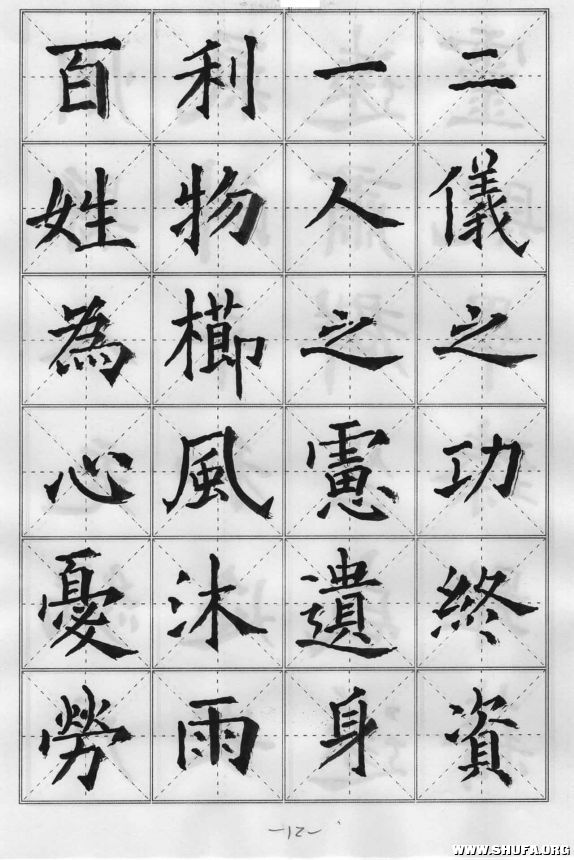 二儀之功終資
一人之慮遺身
利物櫛風沐雨
百姓為心憂勞
-12-
WWW.SHUFA.ORG